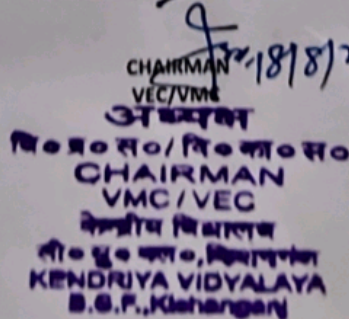 18/8/
CHAIRMAN
VEC/VMC
अध्यक्ष
वि०प्र०स०/वि०का०स०
CHAIRMAN
VMC/VEC
केन्द्रीय विद्यालय
सी०सु०बल०,किशनगंज
KENDRIYA VIDYALAYA
B.S.F.,Kishanganj